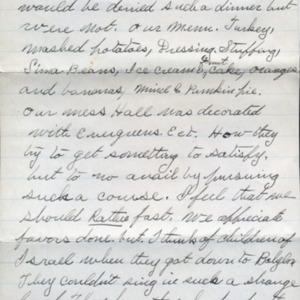 would be denied such a dinner but
were not. Our Menu. Turkey,
mashed potatoes, Dressing, Stuffing,
Lima Beans, Ice cream, Fruit Cake, oranges
and bananas, Mince & Pumkin pie.
Our mess Hall was decorated
with Evergreens Ect. How they
try to get something to satisfy,
but to no avail by pursuing
such a course. I feel that we
should Rather fast. We appreciate
favors done. but. I think of children of
Israel when they got down to Babylon
They couldn't sing in such a strange